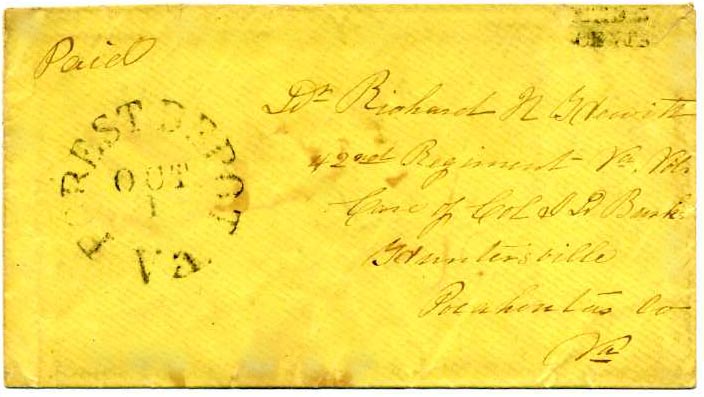 Paid
CENTS
FOREST DEPOT
OCT
1
Va
Dr Richard N Hewitt
42nd Regiment Va. Vols
Care of Col J Burk
Huntersville
Pocahontas Co
Va